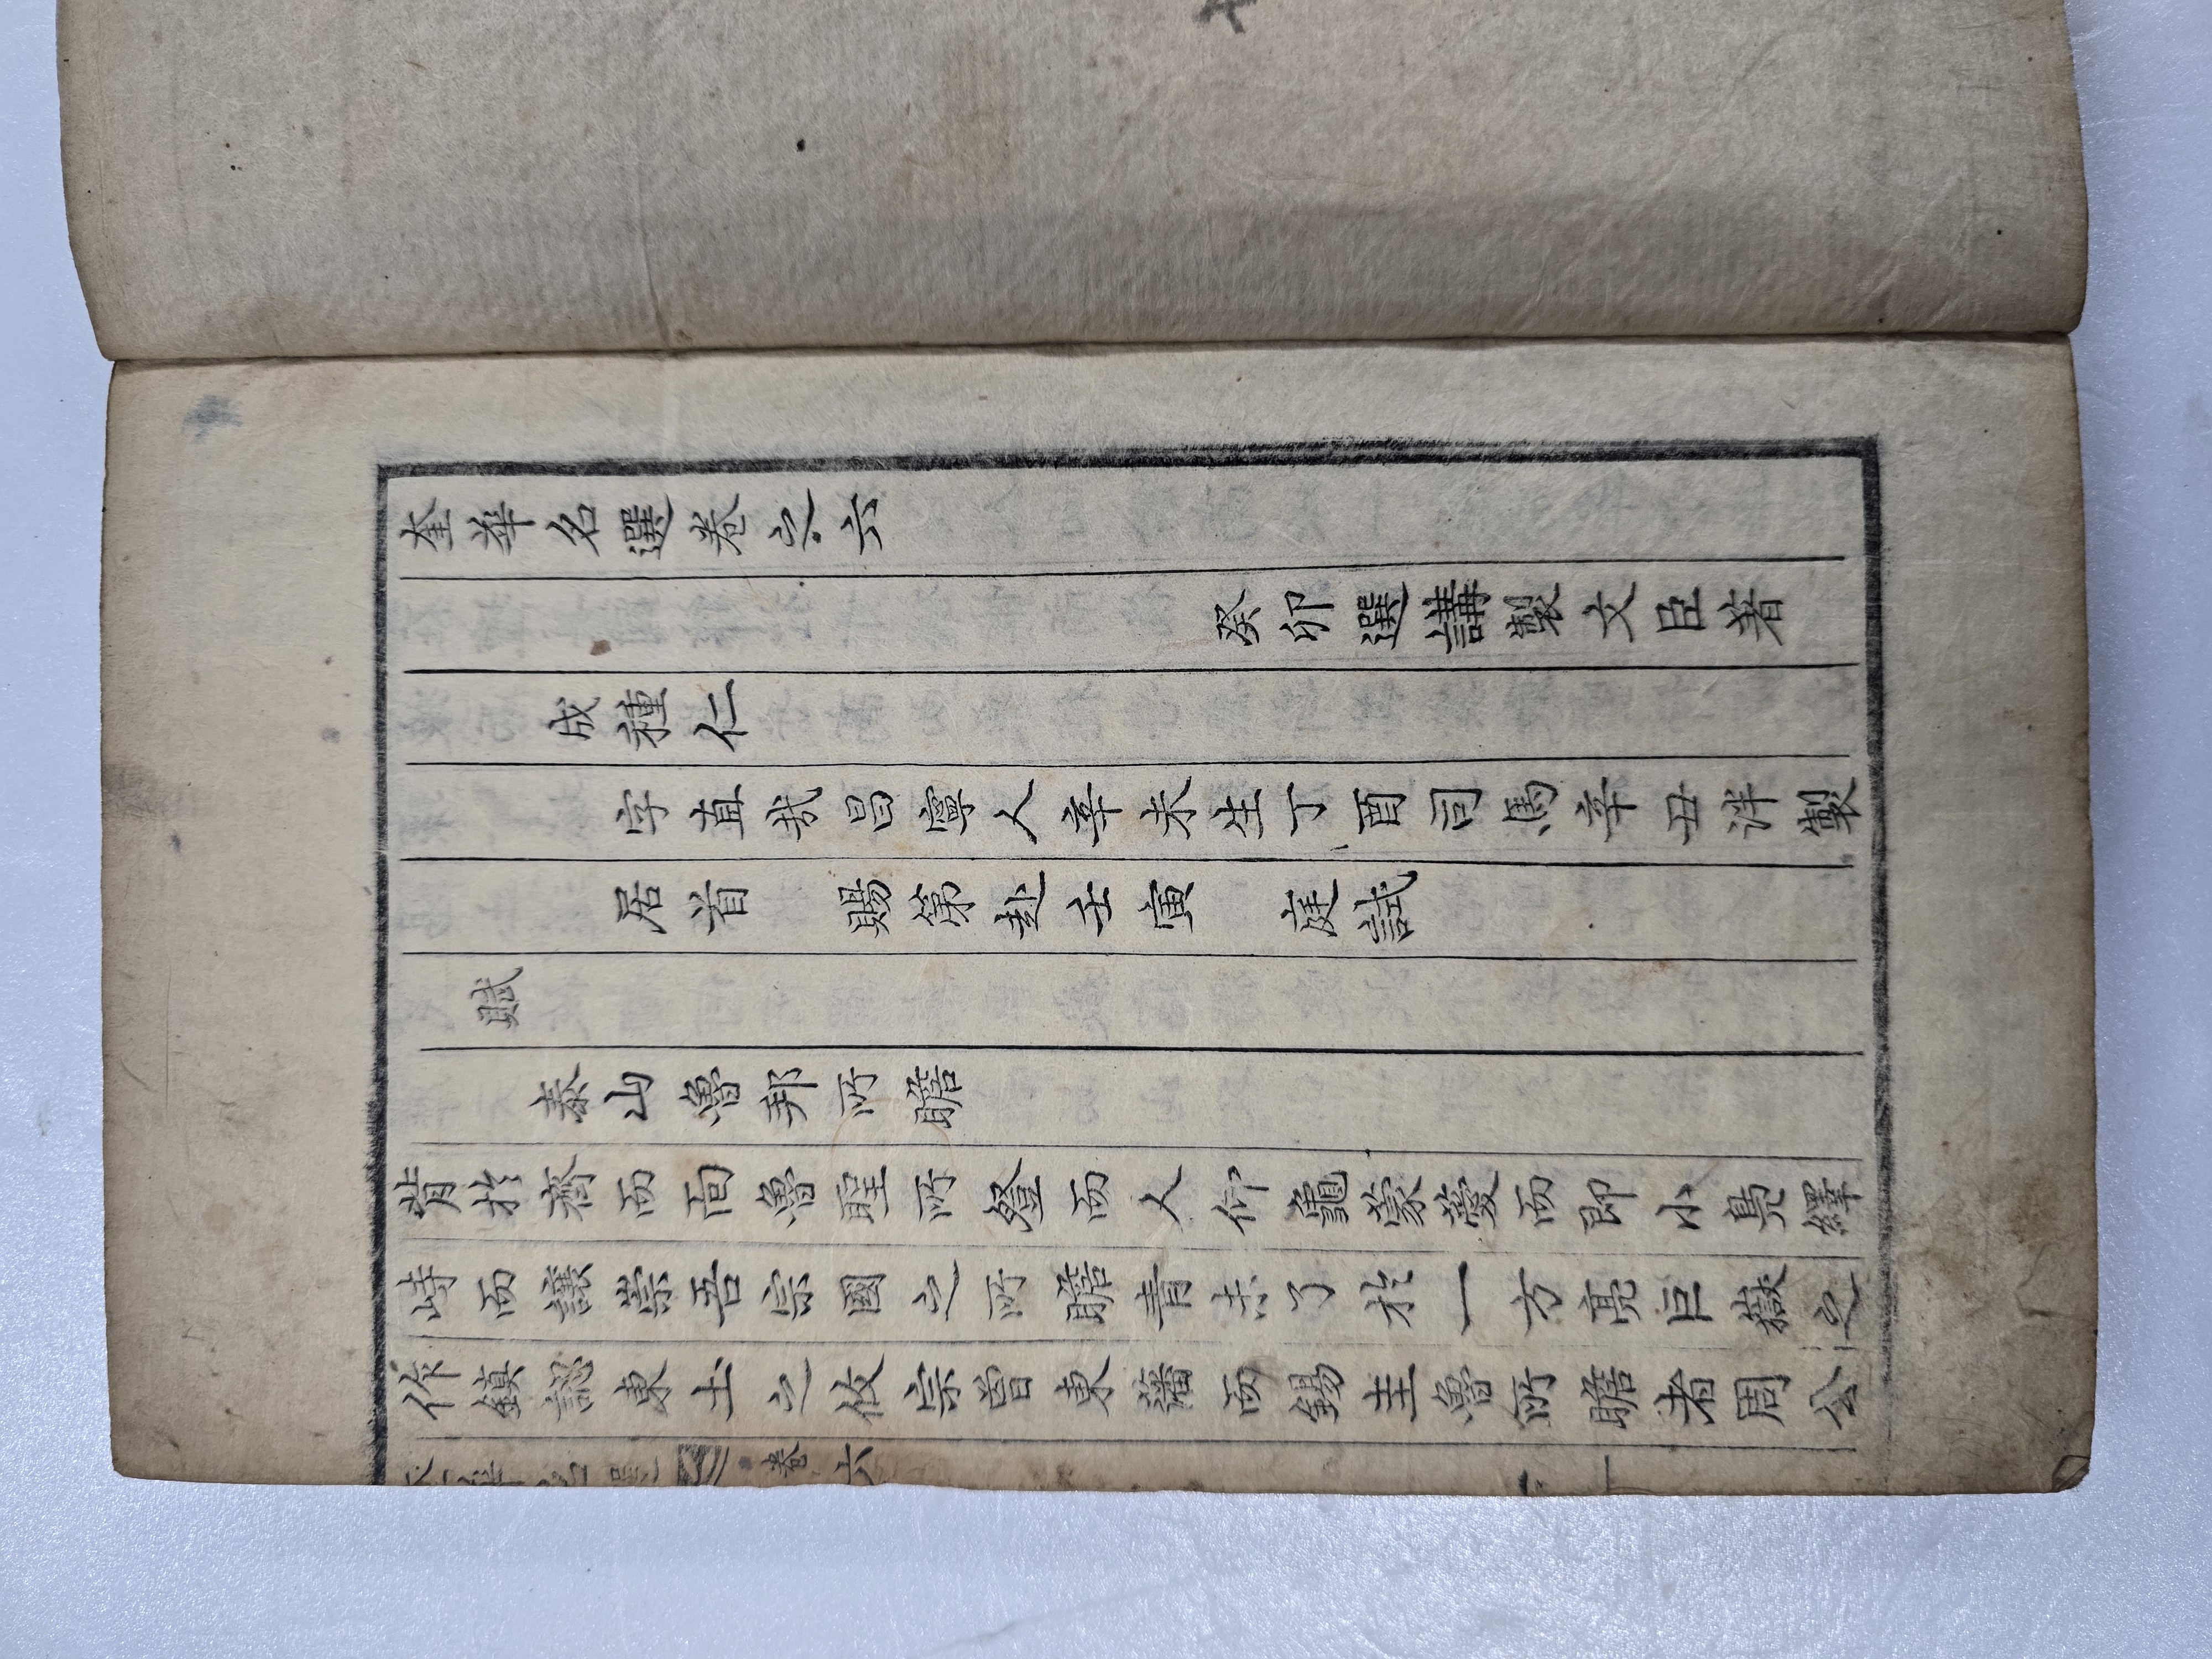 奎華名選卷之六
癸卯選講製文臣著
成種仁
字直哉昌寧人辛未生丁酉司馬辛丑泮製
居首 賜第赴壬寅 庭試
賦
泰山魯邦所瞻
背於齊而面魯聖所登而人仰龜蒙蔓而卽小鳧繹
峙而讓崇吾宗國之所瞻靑未了於一方亮巨嶽之
作鎭認東土之攸宗曾東藩而錫圭魯所瞻者周公
卷六